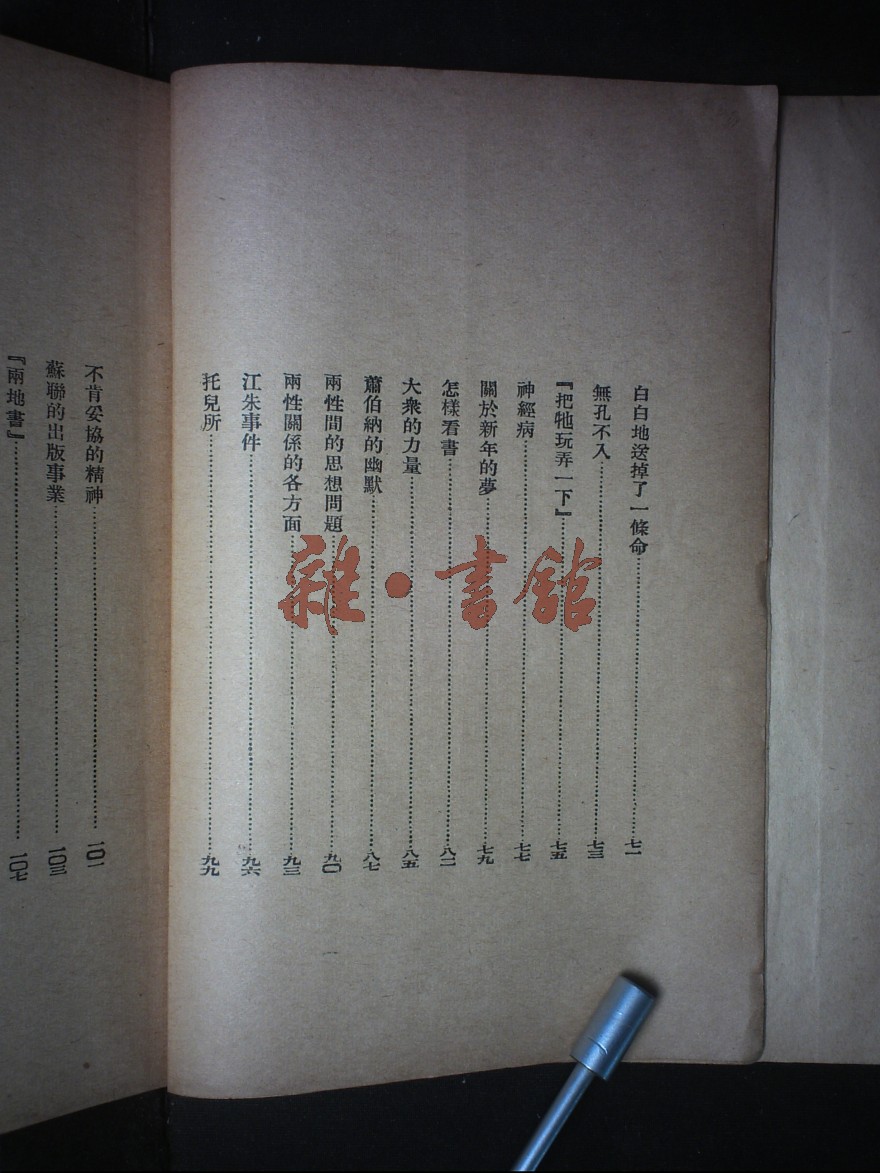 白白地送掉了一條命……七一
無孔不入……七三
『把牠玩弄一下』……七五
神經病……七七
關於新年的夢……七九
怎樣看書……八二
大衆的力量……八五
蕭伯納的幽默……八七
兩性間的思想問題……九〇
兩性關係的各方面……九三
江朱事件……九六
托兒所……九九
一
不肯妥協的精神……一〇一
蘇聯的出版事業……一〇三
『兩地書』……一〇七
雜·書館